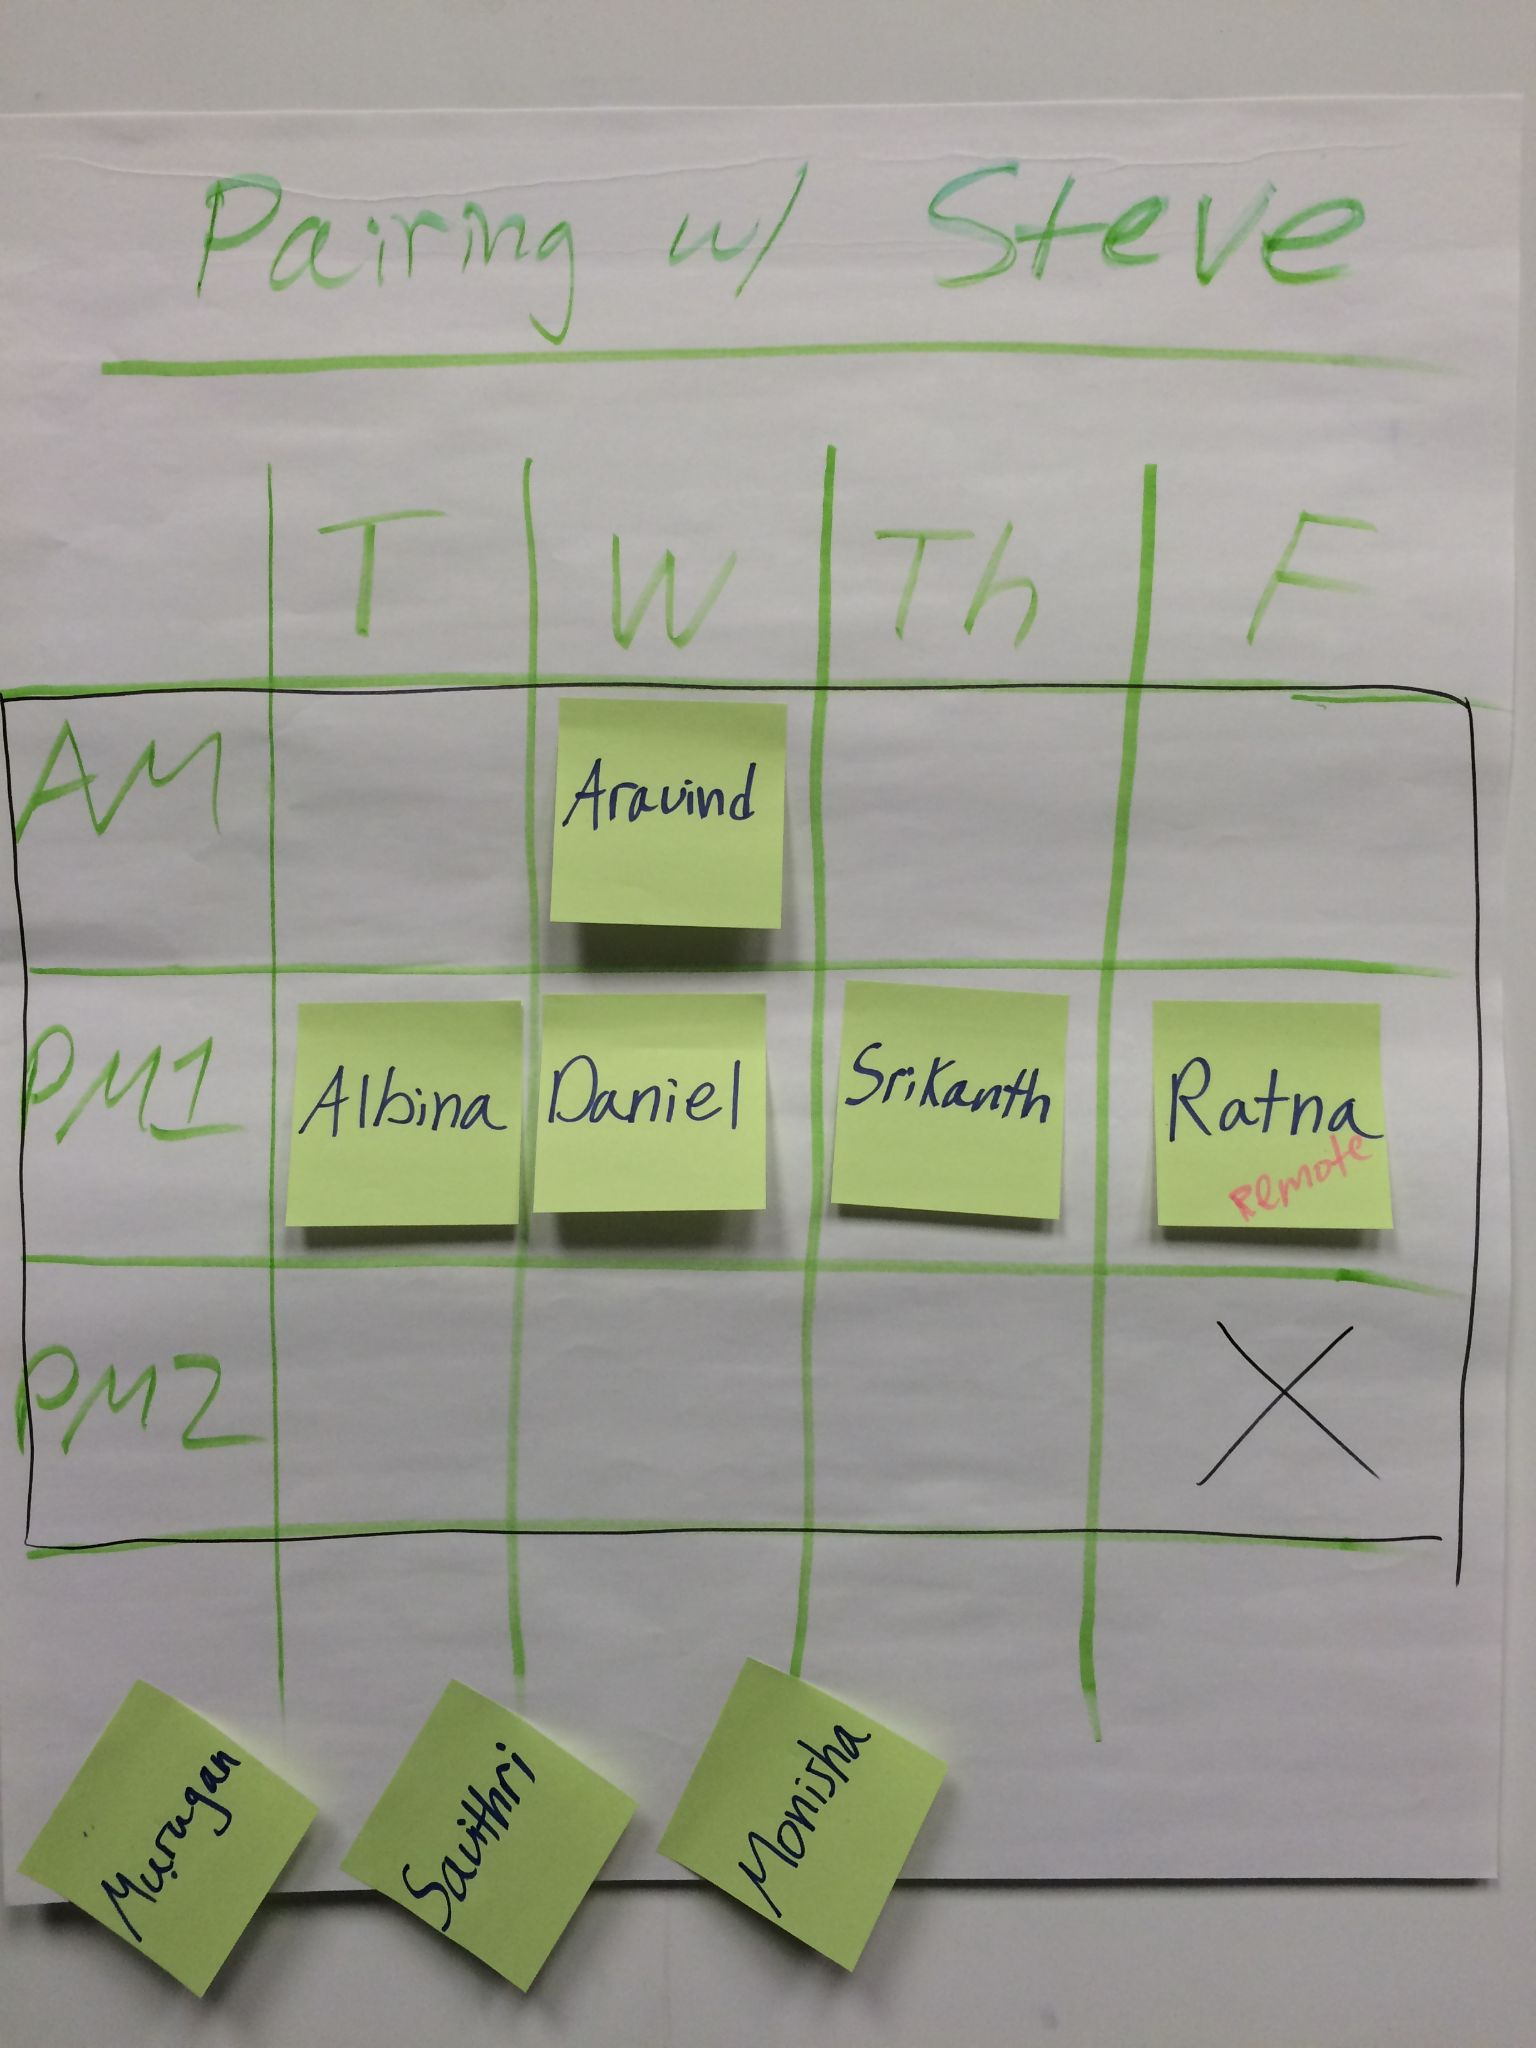 Pairing w/ Steve
T W Th F
AM Aravind
PM1 Albina Daniel Srikanth Ratna
Remote
PM2 X
Murugan Savithri Monisha